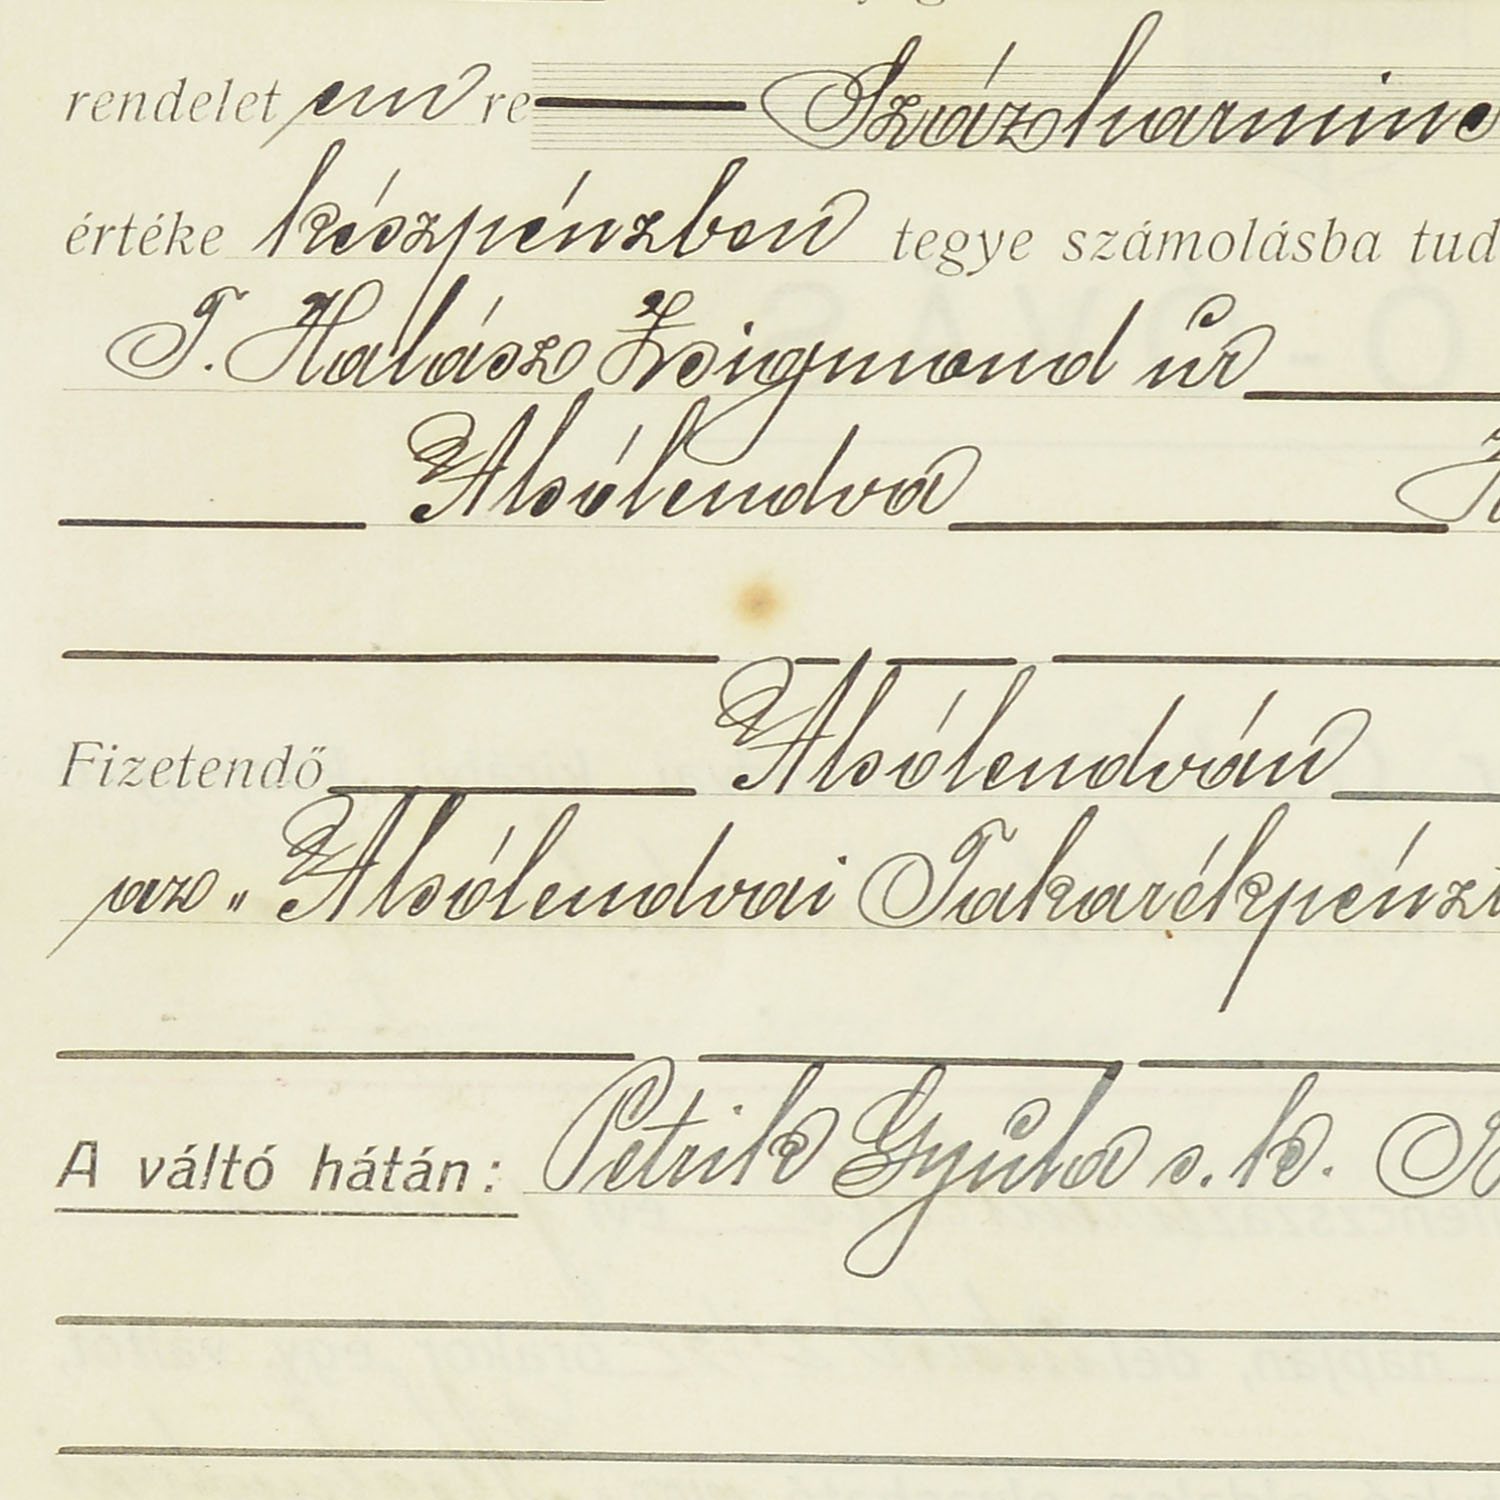 rendelet em re Százharminc
értéke készpénzben tegye számolásba tud
T. Halász Zsigmond úr
Alsólendva
Fizetendő Alsólendván
az „Alsólendvai Takarékpénzt
A váltó hátán: Petrik Gyula s. k.